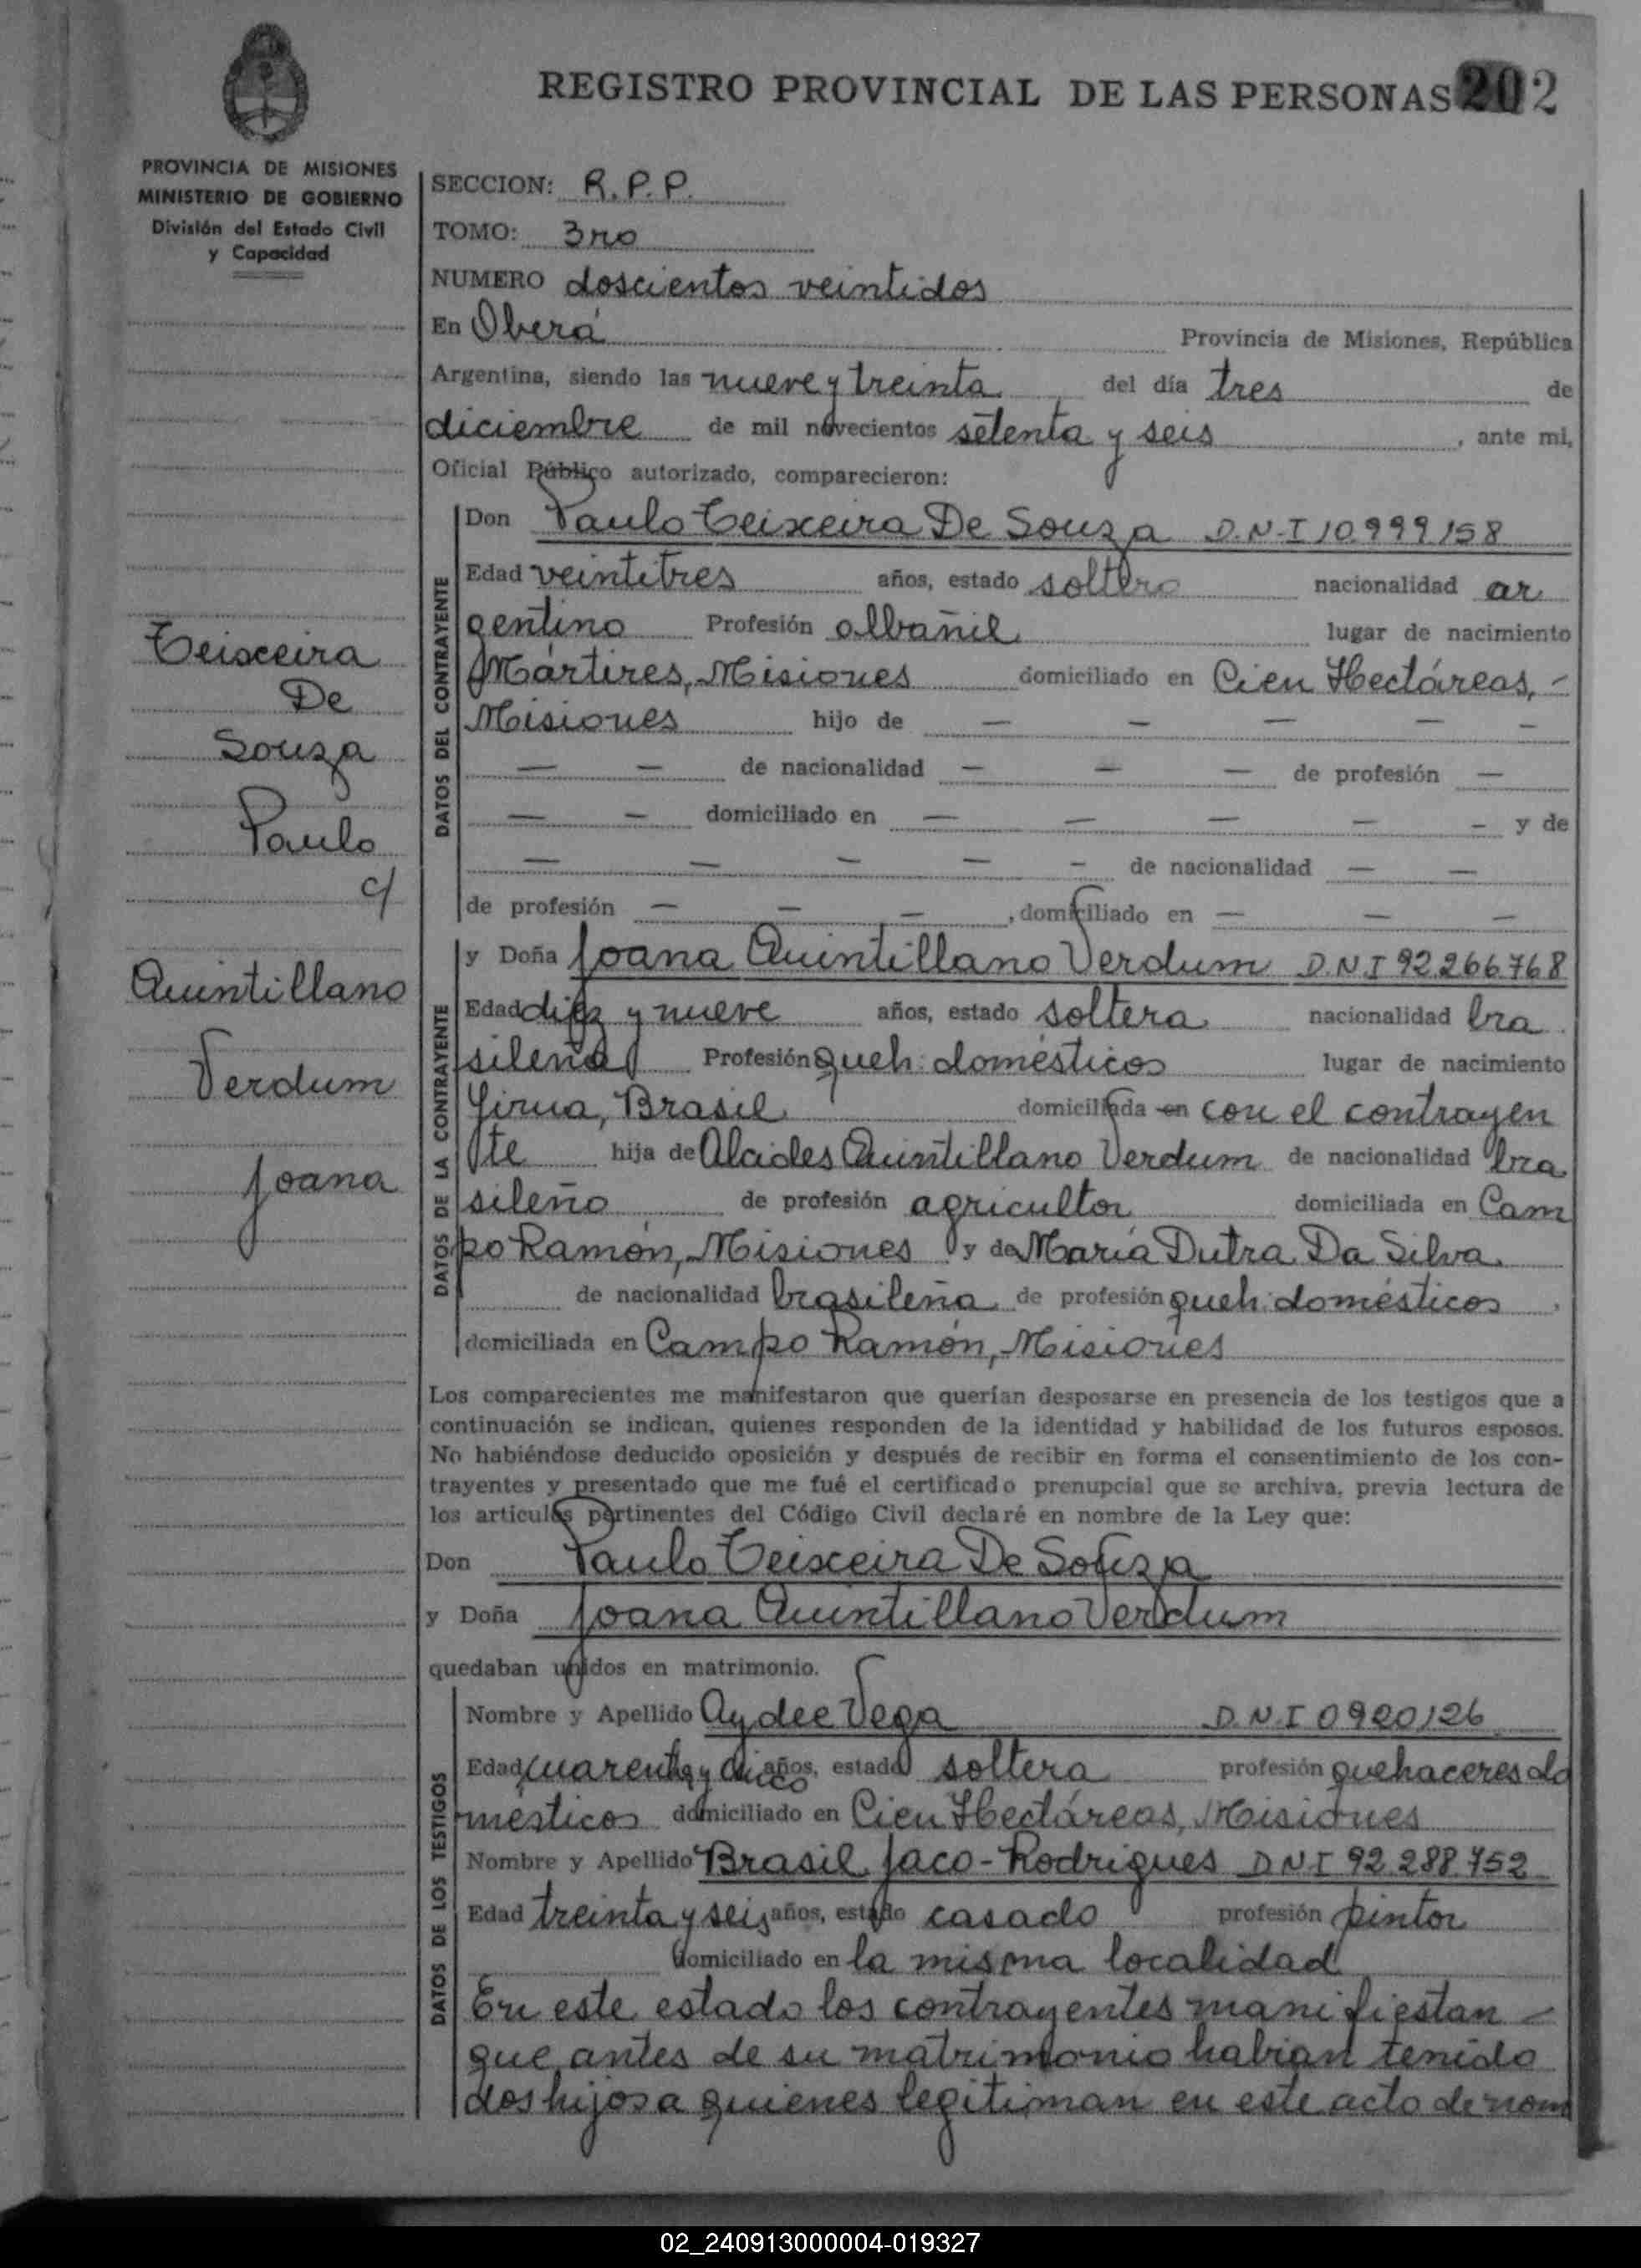 REGISTRO PROVINCIAL DE LAS PERSONAS 202
PROVINCIA DE MISIONES
MINISTERIO DE GOBIERNO
División del Estado Civil
y Capacidad
SECCION: R.P.P.
TOMO: 3ro
NUMERO doscientos veintidos
En Oberá Provincia de Misiones, República
Argentina, siendo las nueve y treinta del día tres de
diciembre de mil novecientos setenta y seis, ante mi,
Oficial Público autorizado, comparecieron:
Teixeira
De
Souza
Paulo
c/
Quintillano
Verdum
Joana
DATOS DEL CONTRAYENTE
Don Paulo Teixeira De Souza D.N.I 10.999.158
Edad veintitres años, estado soltero nacionalidad ar
gentino Profesión albañil lugar de nacimiento
Mártires, Misiones domiciliado en Cien Hectáreas, -
Misiones hijo de — — — — —
— — de nacionalidad — — — de profesión —
— — domiciliado en — — — — — y de
— — — — — de nacionalidad — —
de profesión — — —, domiciliado en — — —
DATOS DE LA CONTRAYENTE
y Doña Joana Quintillano Verdum D.N.I 92.266.768
Edad diez y nueve años, estado soltera nacionalidad bra
sileña Profesión queh. domésticos lugar de nacimiento
Girua, Brasil domiciliada en con el contrayen
te hija de Alcides Quintillano Verdum de nacionalidad bra
sileño de profesión agricultor domiciliada en Cam
po Ramón, Misiones y de María Dutra Da Silva
de nacionalidad brasileña de profesión queh. domésticos,
domiciliada en Campo Ramón, Misiones
Los comparecientes me manifestaron que querían desposarse en presencia de los testigos que a
continuación se indican, quienes responden de la identidad y habilidad de los futuros esposos.
No habiéndose deducido oposición y después de recibir en forma el consentimiento de los con-
trayentes y presentado que me fué el certificado prenupcial que se archiva, previa lectura de
los articulos pertinentes del Código Civil declaré en nombre de la Ley que:
Don Paulo Teixeira De Souza
y Doña Joana Quintillano Verdum
quedaban unidos en matrimonio.
DATOS DE LOS TESTIGOS
Nombre y Apellido Aydee Vega D.N.I 0920126
Edad cuarenta y cinco años, estado soltera profesión quehaceres do
mésticos domiciliado en Cien Hectáreas, Misiones
Nombre y Apellido Brasil Jaco-Rodrigues DNI 92.288.752
Edad treinta y seis años, estado casado profesión pintor
domiciliado en la misma localidad
En este estado los contrayentes manifiestan -
que antes de su matrimonio habian tenido
dos hijos a quienes legitiman en este acto de nom
02_240913000004-019327